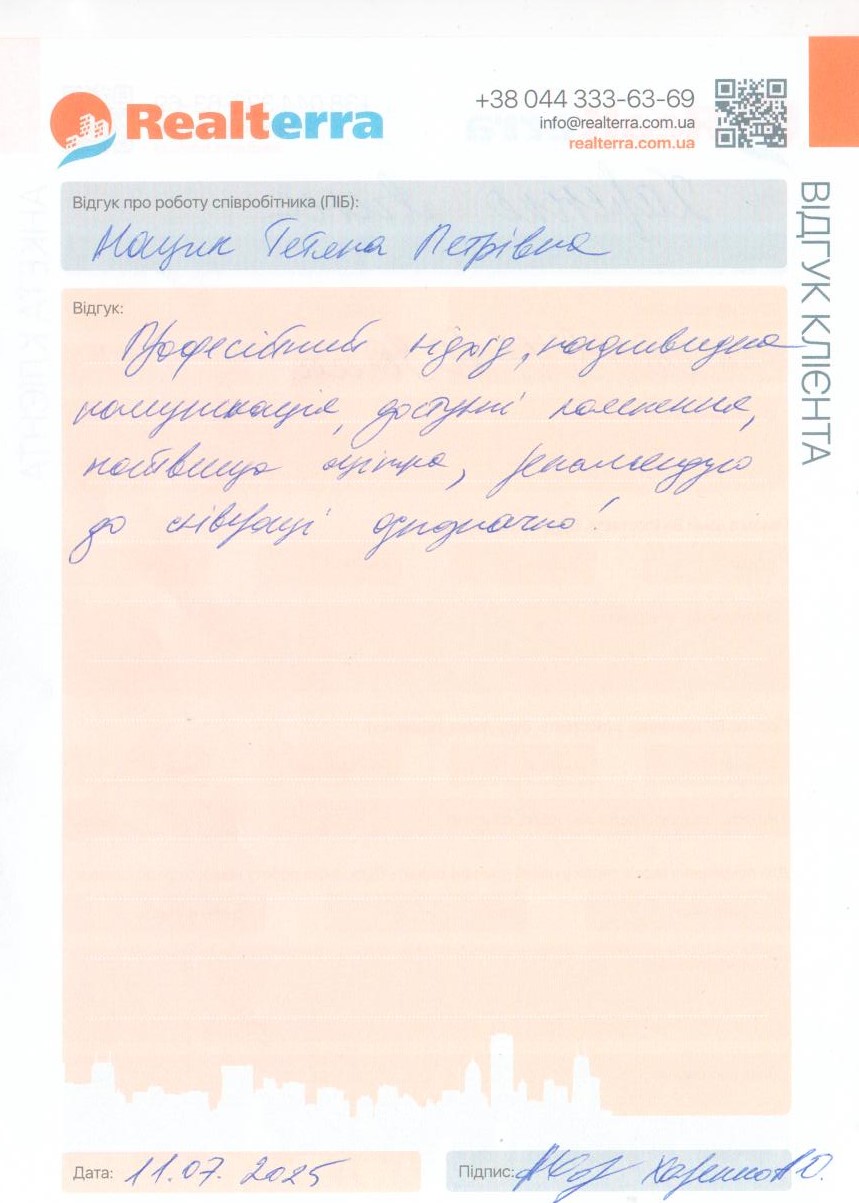 Realterra
+38 044 333-63-69
info@realterra.com.ua
realterra.com.ua
ВІДГУК КЛІЄНТА
Відгук про роботу співробітника (ПІБ):
Нащик Тетяна Петрівна
Відгук:
Професійний підхід, надшвидка
комунікація, доступні пояснення,
найвища оцінка, рекомендую
до співпраці однозначно!
Дата: 11.07.2025
Підпис: